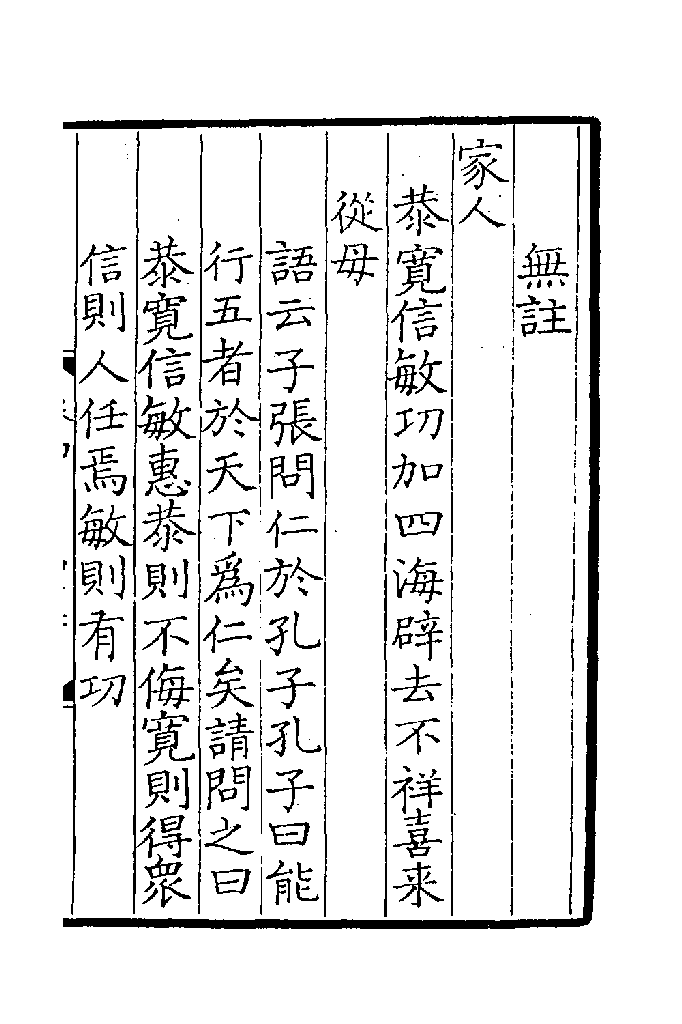 無註
家人
恭寬信敏功加四海辟去不祥喜来
從母
語云子張問仁於孔子孔子曰能
行五者於天下爲仁矣請問之曰
恭寬信敏惠恭則不侮寬則得衆
信則人任焉敏則有功